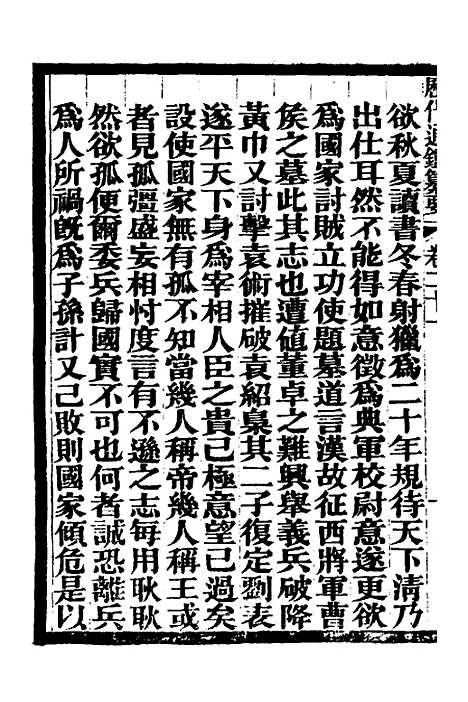 歷代通鑑纂要 卷二十一
欲秋夏讀書冬春射獵爲二十年規待天下清乃
出仕耳然不能得如意徵爲典軍校尉意遂更欲
爲國家討賊立功使題墓道言漢故征西將軍曹
侯之墓此其志也遭値董卓之難興舉義兵破降
黃巾又討擊袁術摧破袁紹梟其二子復定劉表
遂平天下身爲宰相人臣之貴已極意望已過矣
設使國家無有孤不知當幾人稱帝幾人稱王或
者見孤彊盛妄相忖度言有不遜之志每用耿耿
然欲孤便爾委兵歸國實不可也何者誠恐離兵
爲人所禍旣爲子孫計又己敗則國家傾危是以